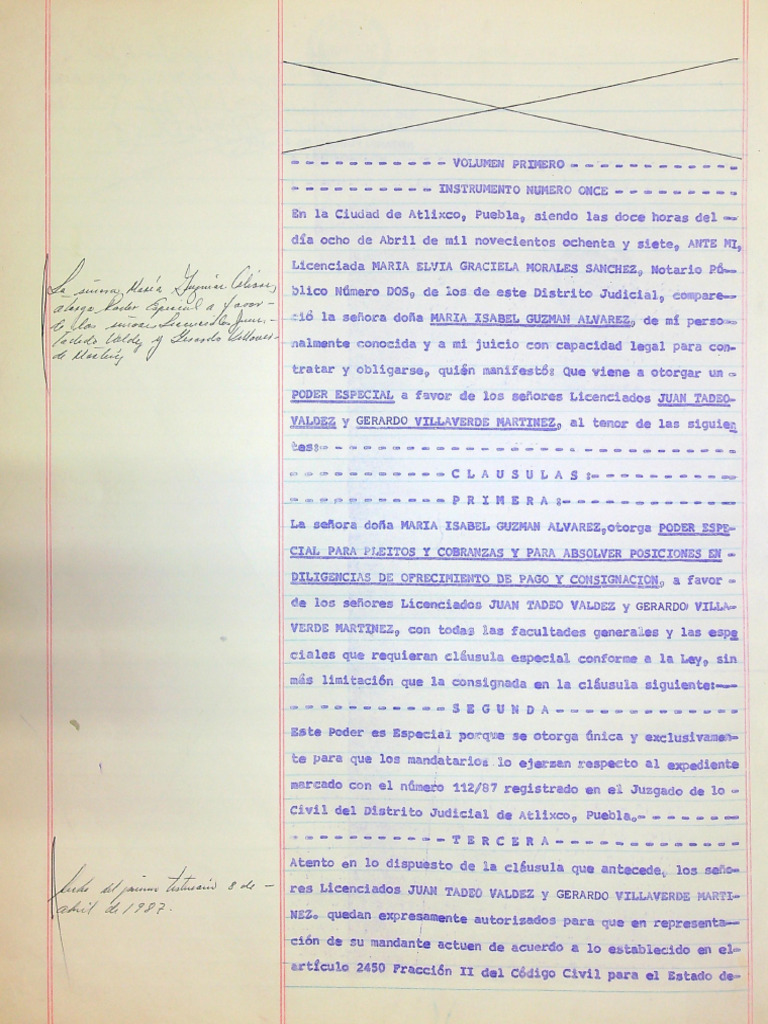 - - - - - - - - - - - VOLUMEN PRIMERO - - - - - - - - - - - -
- - - - - - - - - - INSTRUMENTO NUMERO ONCE - - - - - - - - -
En la Ciudad de Atlixco, Puebla, siendo las doce horas del -
día ocho de Abril de mil novecientos ochenta y siete, ANTE MI,
Licenciada MARIA ELVIA GRACIELA MORALES SANCHEZ, Notario Pú-
blico Número DOS, de los de este Distrito Judicial, compare-
ció la señora doña MARIA ISABEL GUZMAN ALVAREZ, de mí perso-
nalmente conocida y a mi juicio con capacidad legal para con-
tratar y obligarse, quién manifestó: Que viene a otorgar un -
PODER ESPECIAL a favor de los señores Licenciados JUAN TADEO
VALDEZ y GERARDO VILLAVERDE MARTINEZ, al tenor de las siguien
tes:- - - - - - - - - - - - - - - - - - - - - - - -
- - - - - - - - - - - C L A U S U L A S :- - - - - - - - - -
- - - - - - - - - - - P R I M E R A :- - - - - - - - - - - -
La señora doña MARIA ISABEL GUZMAN ALVAREZ,otorga PODER ESPE-
CIAL PARA PLEITOS Y COBRANZAS Y PARA ABSOLVER POSICIONES EN -
DILIGENCIAS DE OFRECIMIENTO DE PAGO Y CONSIGNACION, a favor -
de los señores Licenciados JUAN TADEO VALDEZ y GERARDO VILLA-
VERDE MARTINEZ, con todas las facultades generales y las espe
ciales que requieran cláusula especial conforme a la Ley, sin
más limitación que la consignada en la cláusula siguiente:--
- - - - - - - - - - - S E G U N D A - - - - - - - - - - - - -
Este Poder es Especial porque se otorga única y exclusivamen-
te para que los mandatarios lo ejerzan respecto al expediente
marcado con el número 112/87 registrado en el Juzgado de lo -
Civil del Distrito Judicial de Atlixco, Puebla.- - - - - - -
- - - - - - - - - - - T E R C E R A - - - - - - - - - - - - -
Atento en lo dispuesto de la cláusula que antecede, los seño-
res Licenciados JUAN TADEO VALDEZ y GERARDO VILLAVERDE MARTI-
NEZ. quedan expresamente autorizados para que en representa--
ción de su mandante actuen de acuerdo a lo establecido en el-
artículo 2450 Fracción II del Código Civil para el Estado de-
La señora María
otorga Poder Especial a favor-
de los señores
Valdez y Gerardo
de
8 de -
abril de 1987.